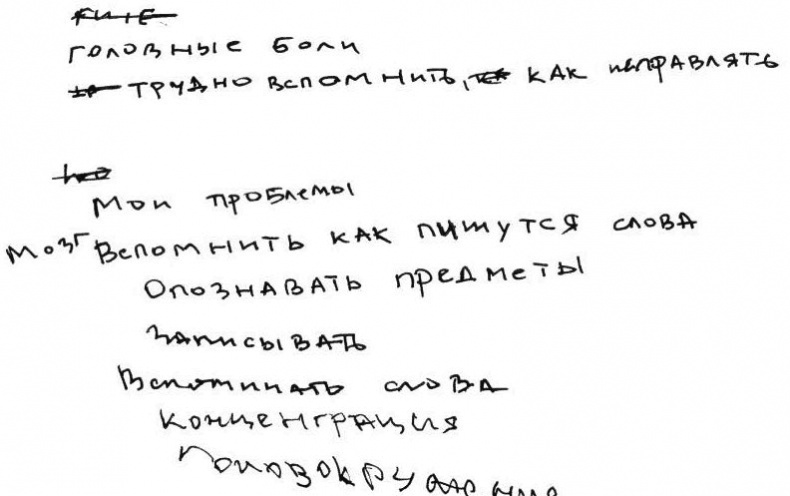 головные боли
трудно вспомнить, как направлять
Мои проблемы
Мозг Вспомнить как пишутся слова
Опознавать предметы
Записывать
Вспоминать слова
Концентрация
Головокружения